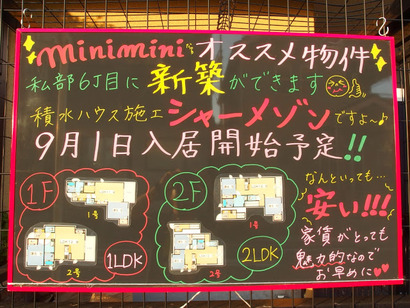 minimini's オススメ物件
私部6丁目に新築ができます
積水ハウス施工シャーメゾンですよ～♪
9月1日入居開始予定!!
1F
1号
2号
1LDK
2F
1号
2号
2LDK
なんといっても…
安い!!!
家賃がとっても
魅力的なので
お早めに